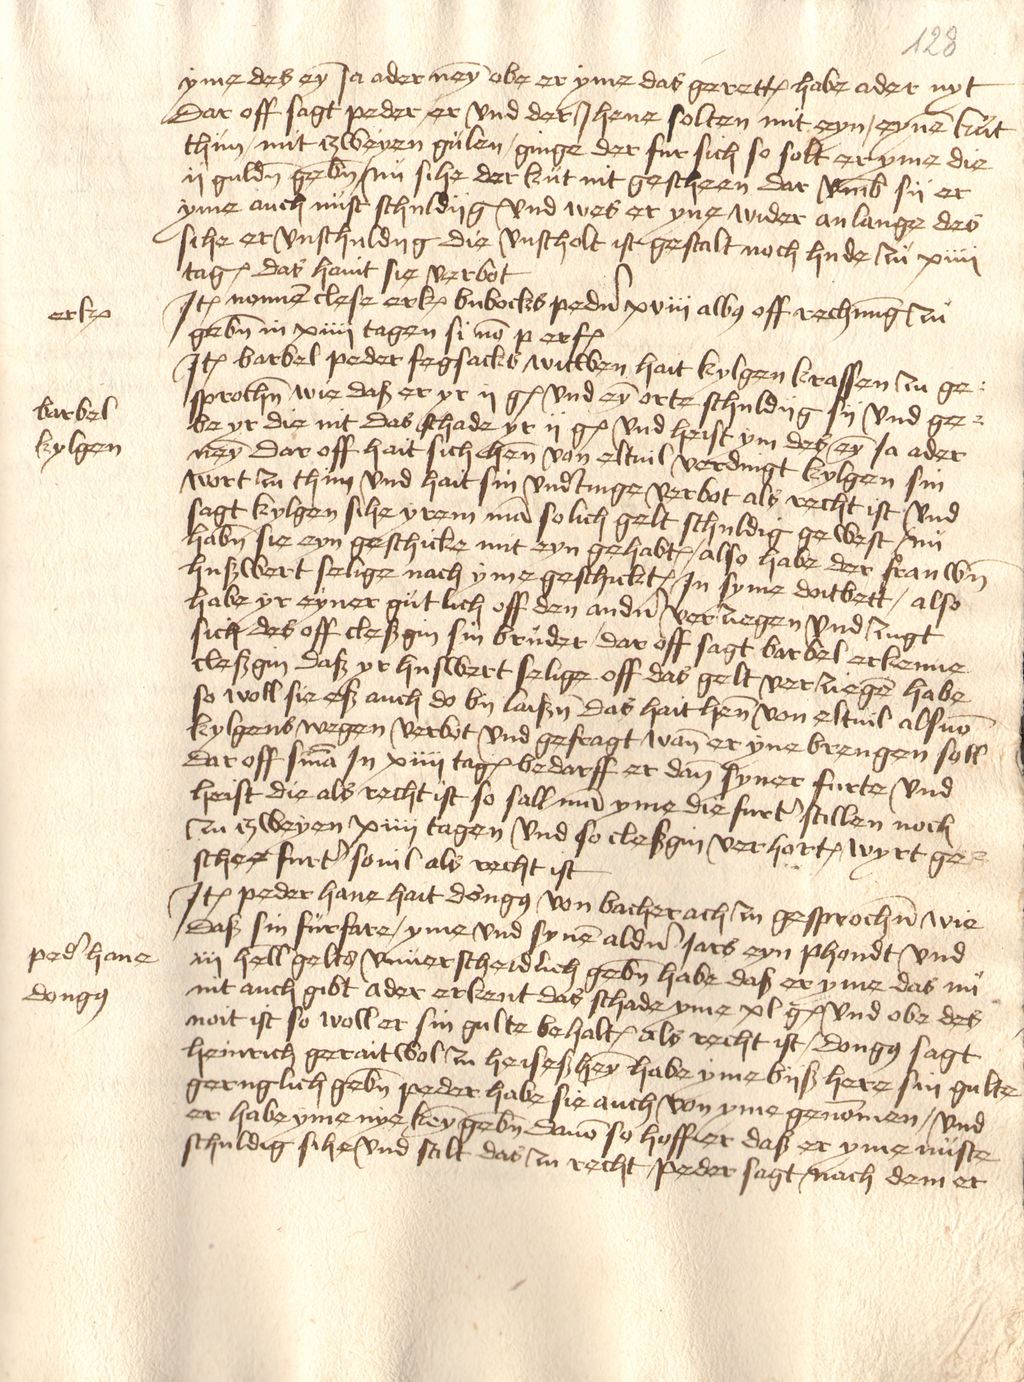 128
yme des ey Ja ader ney obe er yme das gerett habe ader nyt
Dar off sagt peder er vnd der Jhene solten mit eyn eyne kut
thun mit zweyen gulen ginge der fur sich so solt er yme die
ij guldn gebn nu sihe der kut nit gescheen dar vmb sij er
yme auch nust schuldig vnd wes er yne wider anlange des
sihe er vnschuldig die vnscholt ist gestalt noch hude zu xiiij
tag das hait sie verbot
erk
It nonne clese erk bubocks pedn xviij albus off rechnung zu
gebn in xiiij tagen si no p erf
barbel
kylgen
It barbel peder fegsacks witwen hait kylgen krassen zu ge
sprochn wie daß er yr ij g vnd ey orte schuldig sij vnd ge
be yr die nit das schade yr ij g vnd heist ym des ey Ja ader
ney Dar off hait sich hen von eltuil verdingt kylgen sin
wort zu thun vnd hait sin vndtinge verbot als recht ist vnd
sagt kylgen sihe yrem ma solich gelt schuldig gewest nu
habn sie eyn geschicke mit eyn gehabt also habe der frauwn
hußwert selige nach yme geschickt In syme doitbett also
habe yr eyner gutlich off den andn verziegen vnd zugt
sich des off cleßgin sin bruder dar off sagt barbel erkenne
cleßgin daß yr hußwert selige off das gelt verziege habe
so woll sie eß auch do by laißn Das hait hen von eltuil
kylgens wegen verbot vnd gefragt wan er yne brengen soll
dar off sma In xiiij tag bedarff er dan syner furte vnd
heist die als recht ist so sall ma yme die furt stillen noch
zu zweyen xiiij tagen vnd so cleßgin verhort wyrt ge
schee furt souil als recht ist
ped hane
dongus
It peder hane hait dongus von bacherach zu gesprochn wie
daß sin furfare yme vnd syne aldn Jars eyn phondt vnd
iiij hell gelts vnuerscheidlich gebn habe daß er yme das nu
nit auch gibt ader erkent das schade yme xl g vnd obe des
noit ist so woll er sin gulte behalt als recht ist dongus sagt
heinrich gerait wol zu heiseßheym habe yme bijß here sin gulte
geruglich gebn peder habe sie auch von yme genomen vnd
er habe yme nye key gebn dauo so hoff er daß er yme nuste
schuldig sihe vnd stilt das zu recht peder sagt nach dem er